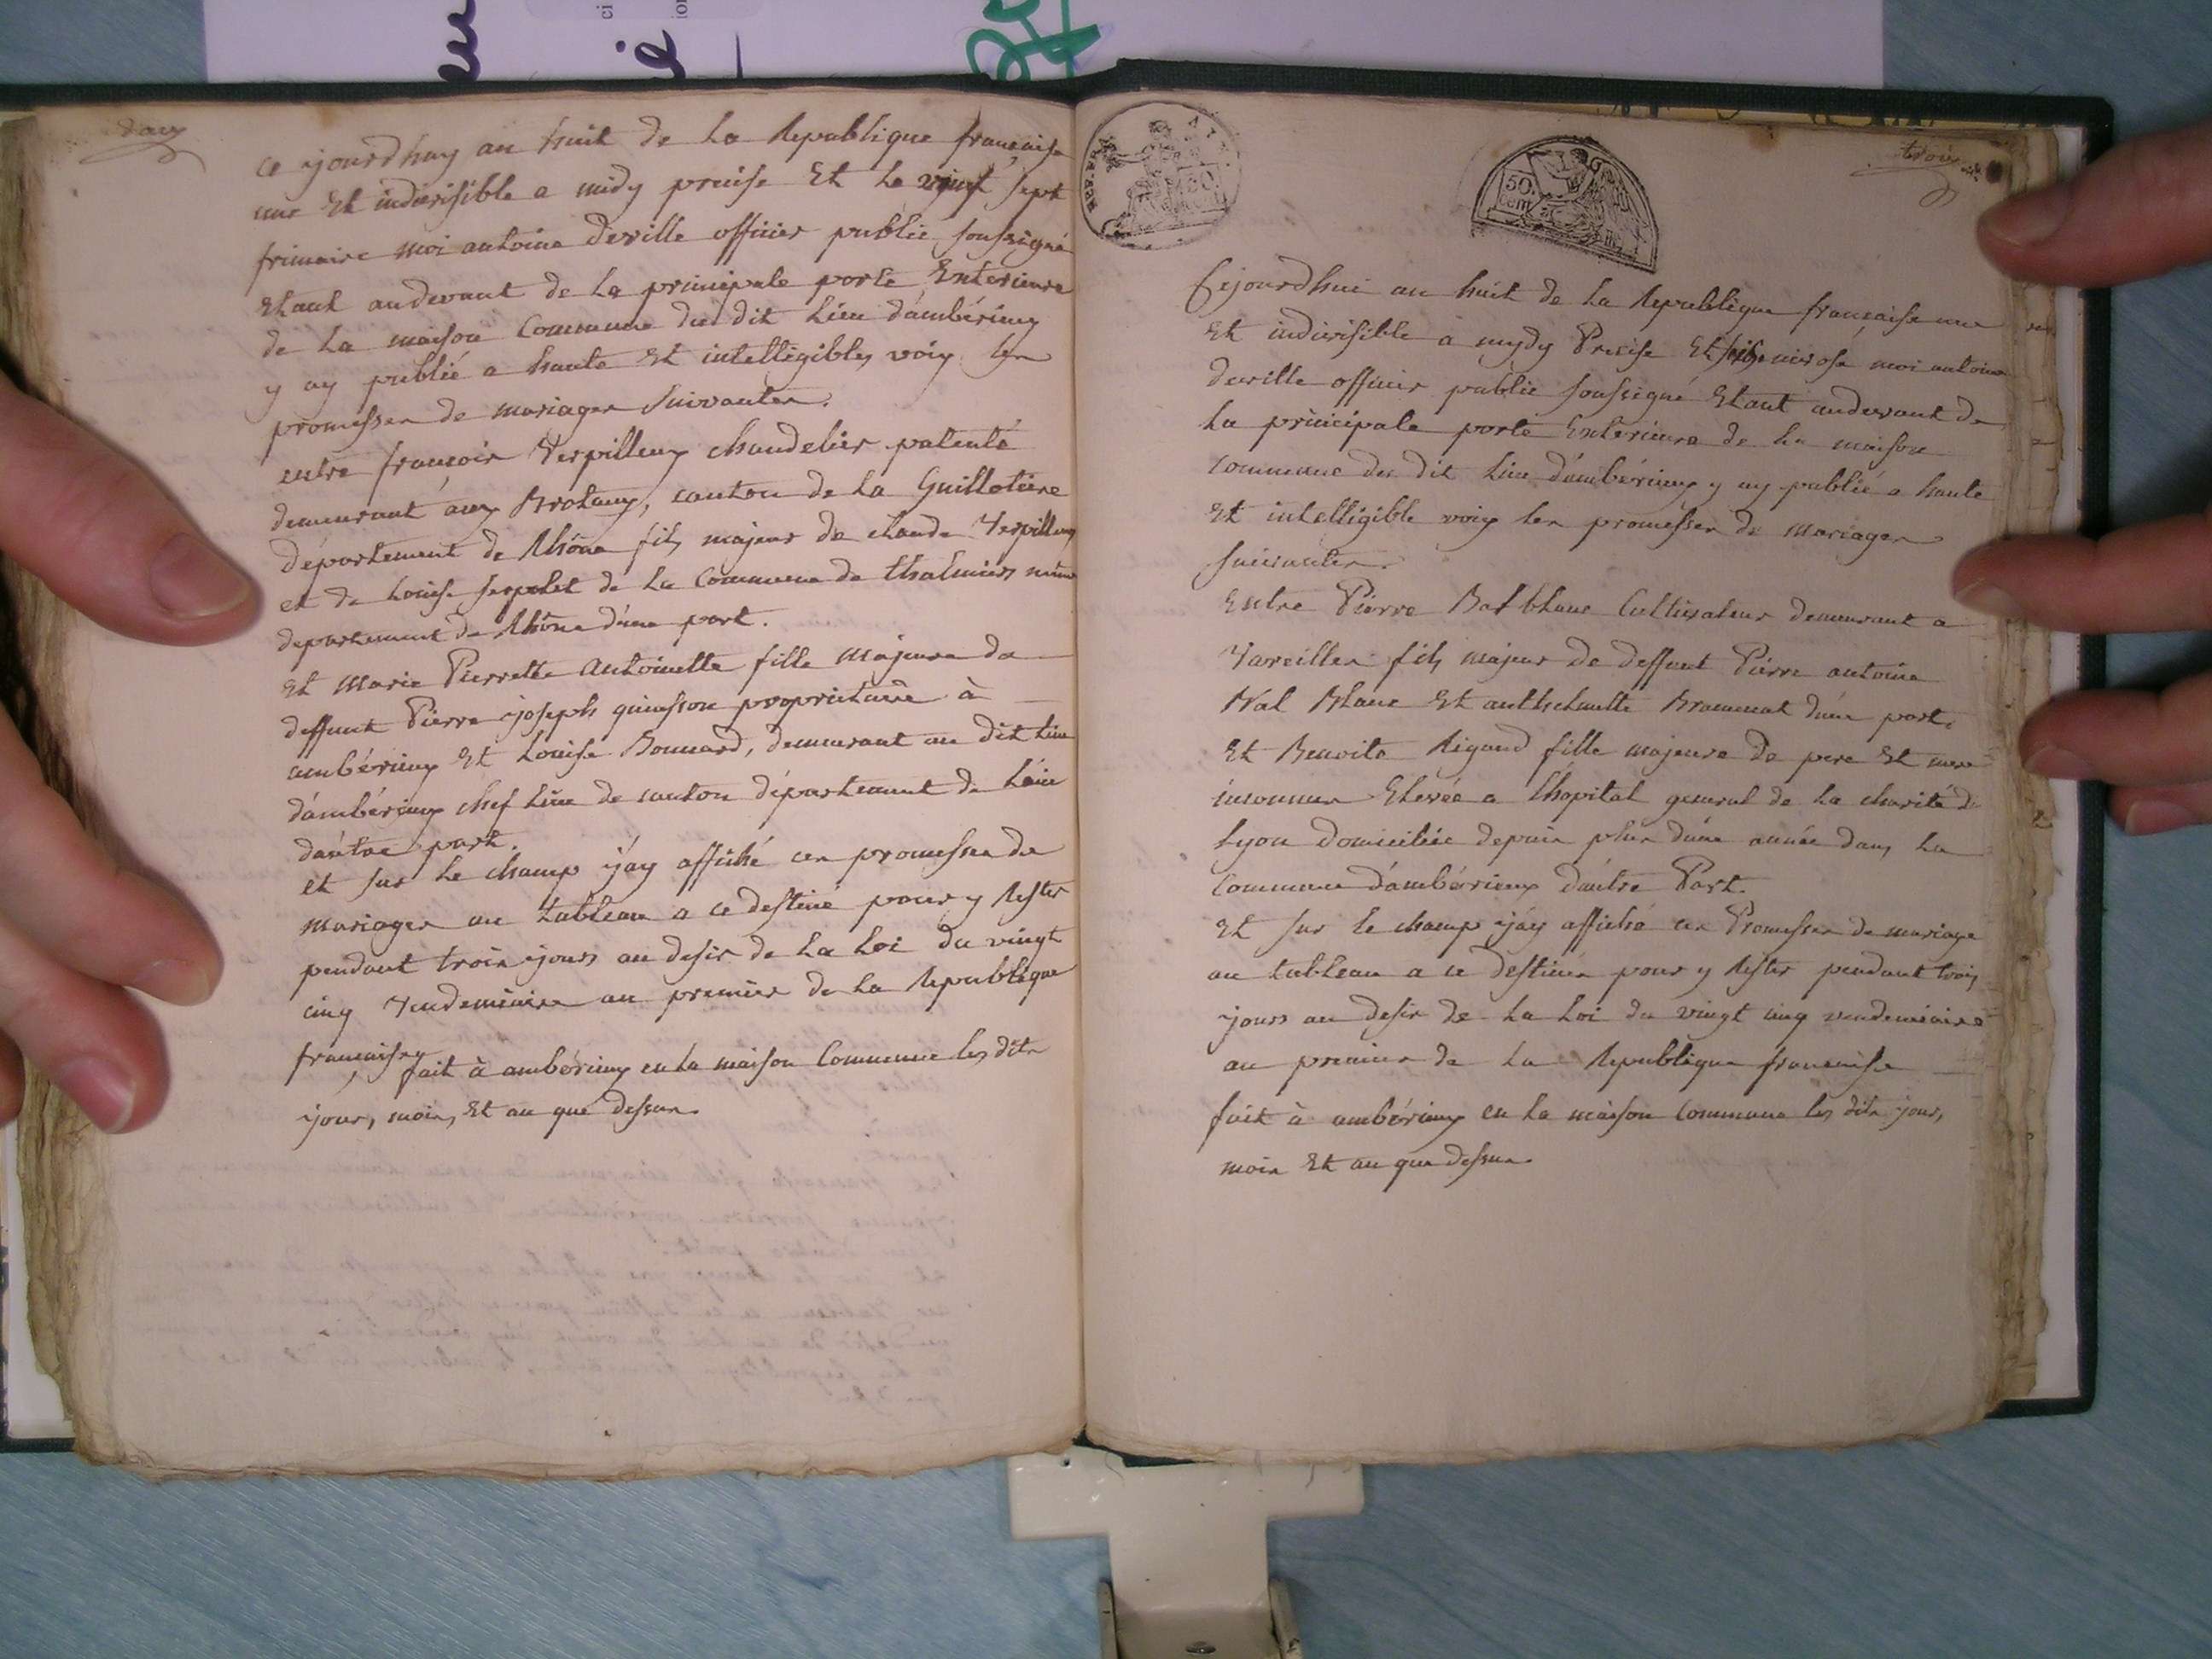 deux
ce jourdhuy an huit de La Republique francaise
une Et indivisible a midy precise Et Le vingt sept
frimaire moi antoine deville officier public soussigné
Etant audevant de La principale porte Exterieure
de La maison Commune du dit Lieu d'ambérieux
y ay publié a haute Et intelligibles voix les
promesses de mariages Suivantes.
entre françois Verpilleux chandelier patenté
demeurant aux Brotaux, canton de La Guillotiere
département de Rhône fils majeur de claude Verpilleux
et de Louise de La Commune de même
departement de Rhône d'une part.
Et Marie Pierrette Antoinette fille Majeure de
deffunt Pierre joseph quinsson proprietaire à
ambérieux Et Louise Bonnard, demeurant au dit Lieu
d'ambérieux chef Lieu de canton département de L'ain
d'autre part.
et sur Le champ j'ay affiché ces promesses de
mariages au tableau a ce destiné pour y Rester
pendant trois jours au desir de La Loi du vingt
cinq Vendemiaire an premier de La Republique
francaise,
fait à ambérieux en La maison Commune les dits
jour, mois, Et an que dessus.
trois
50.
Cent.
Cejourdhui an huit de La Republique francaise une
Et indivisible a mydy Precise Et nivose moi antoine
deville officier public soussigné Etant audevant de
La principale porte Exterieure de La maison
commune du dit Lieu d'ambérieux y ay publié a haute
Et intelligible voix les promesses de Mariages
suivantes.
Entre Pierre Balblanc Cultivateur demeurant a
Vareilles fils majeur de deffunt Pierre antoine
Bal Blanc Et d'une part.
Et Benoite Rigaud fille majeure de pere Et mere
inconnus Elevée a l'hopital general de La charité de
Lyon domiciliée depuis plus d'une année dans La
Commune d'ambérieux d'autre Part.
Et sur le champ j'ay affiché ces Promesses de mariage
au tableau a ce destiné pour y Rester pendant trois
jours au desir de La Loi du vingt cinq vendemiaire
an premier de La Republique francaise
fait à ambérieux en La maison Commune les dits jour,
mois Et an que dessus.